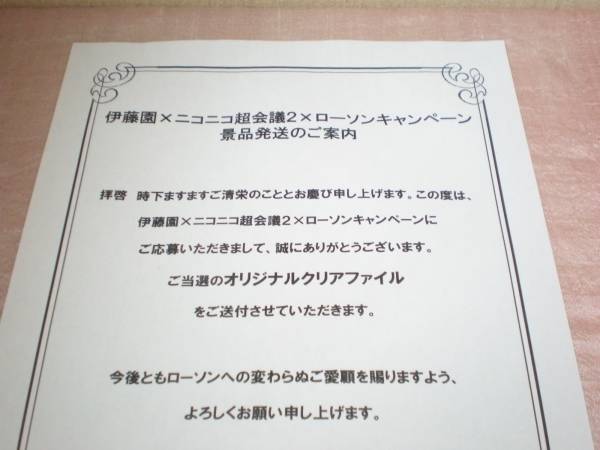 伊藤園×ニコニコ超会議2×ローソンキャンペーン
景品発送のご案内
拝啓 時下ますますご清栄のこととお慶び申し上げます。この度は、
伊藤園×ニコニコ超会議2×ローソンキャンペーンに
ご応募いただきまして、誠にありがとうございます。
ご当選のオリジナルクリアファイル
をご送付させていただきます。
今後ともローソンへの変わらぬご愛顧を賜りますよう、
よろしくお願い申し上げます。